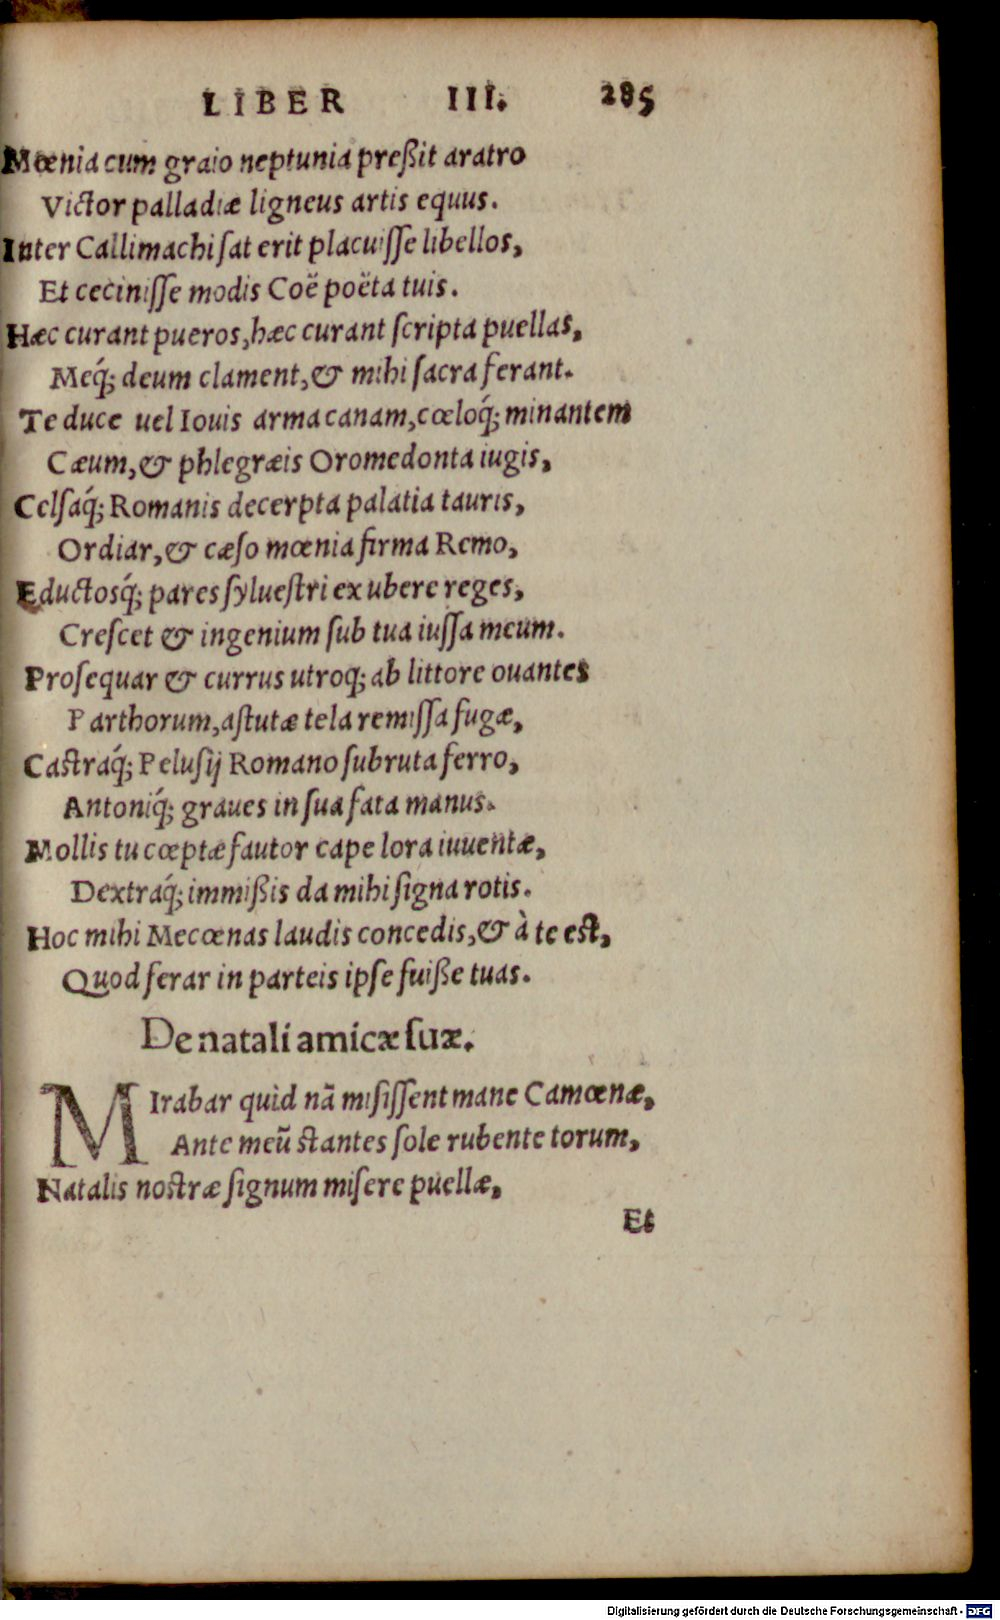 LIBER III. 285
Mœnia cum graio neptunia preßit aratro
Victor palladiæ ligneus artis equus.
Inter Callimachi ſat erit placuiſſe libellos,
Et ceciniſſe modis Coë poëta tuis.
Hæc curant pueros, hæc curant ſcripta puellas,
Meq́; deum clament, & mihi ſacra ferant.
Te duce uel Iouis arma canam, cœloq́; minantem
Cæum, & phlegræis Oromedonta iugis,
Celſaq́; Romanis decerpta palatia tauris,
Ordiar, & cæſo mœnia firma Remo,
Eductosq́; pares ſylueſtri ex ubere reges,
Creſcet & ingenium ſub tua iuſſa meum.
Proſequar & currus utroq; ab littore ouantes
Parthorum, aſtutæ tela remiſſa fugæ,
Caſtraq́; Peluſij Romano ſubruta ferro,
Antoniq́; graues in ſua fata manus.
Mollis tu cœptæ fautor cape lora iuuentæ,
Dextraq́; immißis da mihi ſigna rotis.
Hoc mihi Mecœnas laudis concedis, & à te eſt,
Quod ferar in parteis ipſe fuiße tuas.
De natali amicæ ſuæ.
MIrabar quid nā miſiſſent mane Camœnæ,
Ante meū ſtantes ſole rubente torum,
Natalis noſtræ ſignum miſere puellæ,
Et
Digitalisierung gefördert durch die Deutsche Forschungsgemeinschaft - DFG